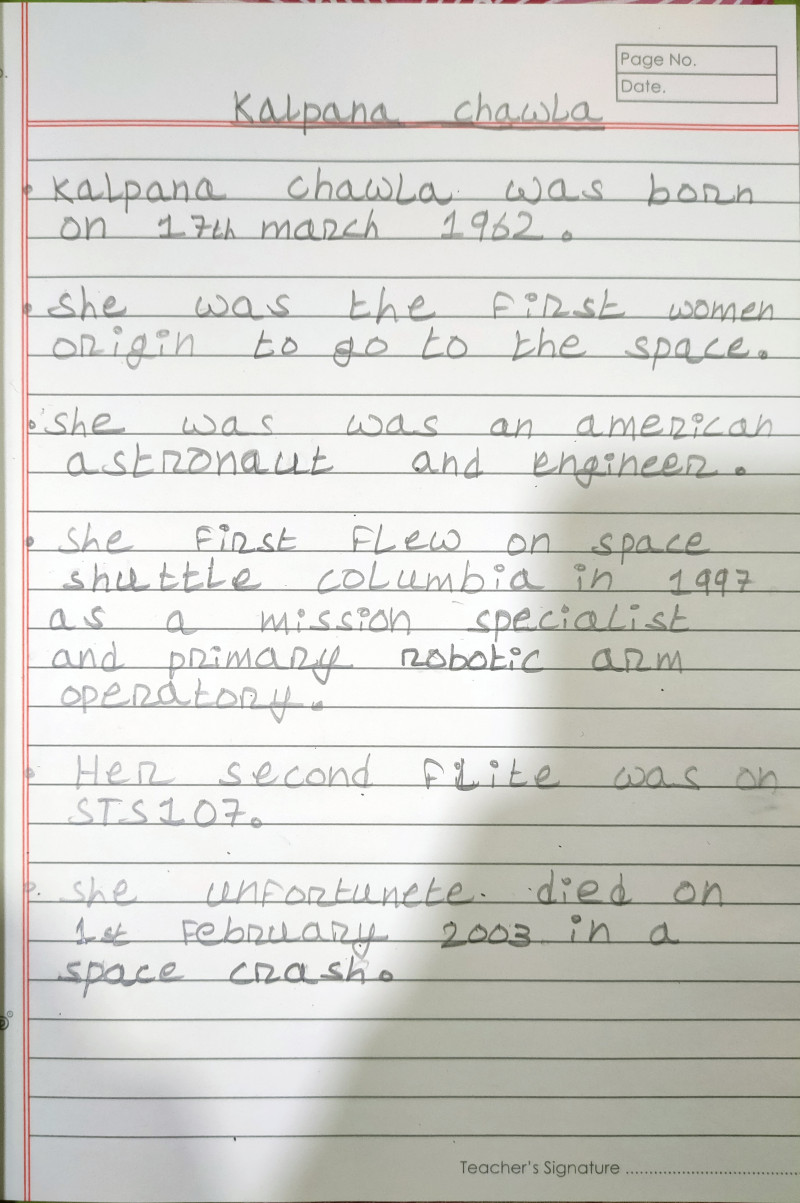 Page No.
Date.
Kalpana chawla
• Kalpana chawla was born
on 17th march 1962.
• she was the first women
origin to go to the space.
• she was was an american
astronaut and engineer.
• she first flew on space
shuttle columbia in 1997
as a mission specialist
and primary robotic arm
operatory.
• Her second flite was on
STS107.
• she unfortunete. died on
1st february 2003 in a
space crash.
Teacher's Signature